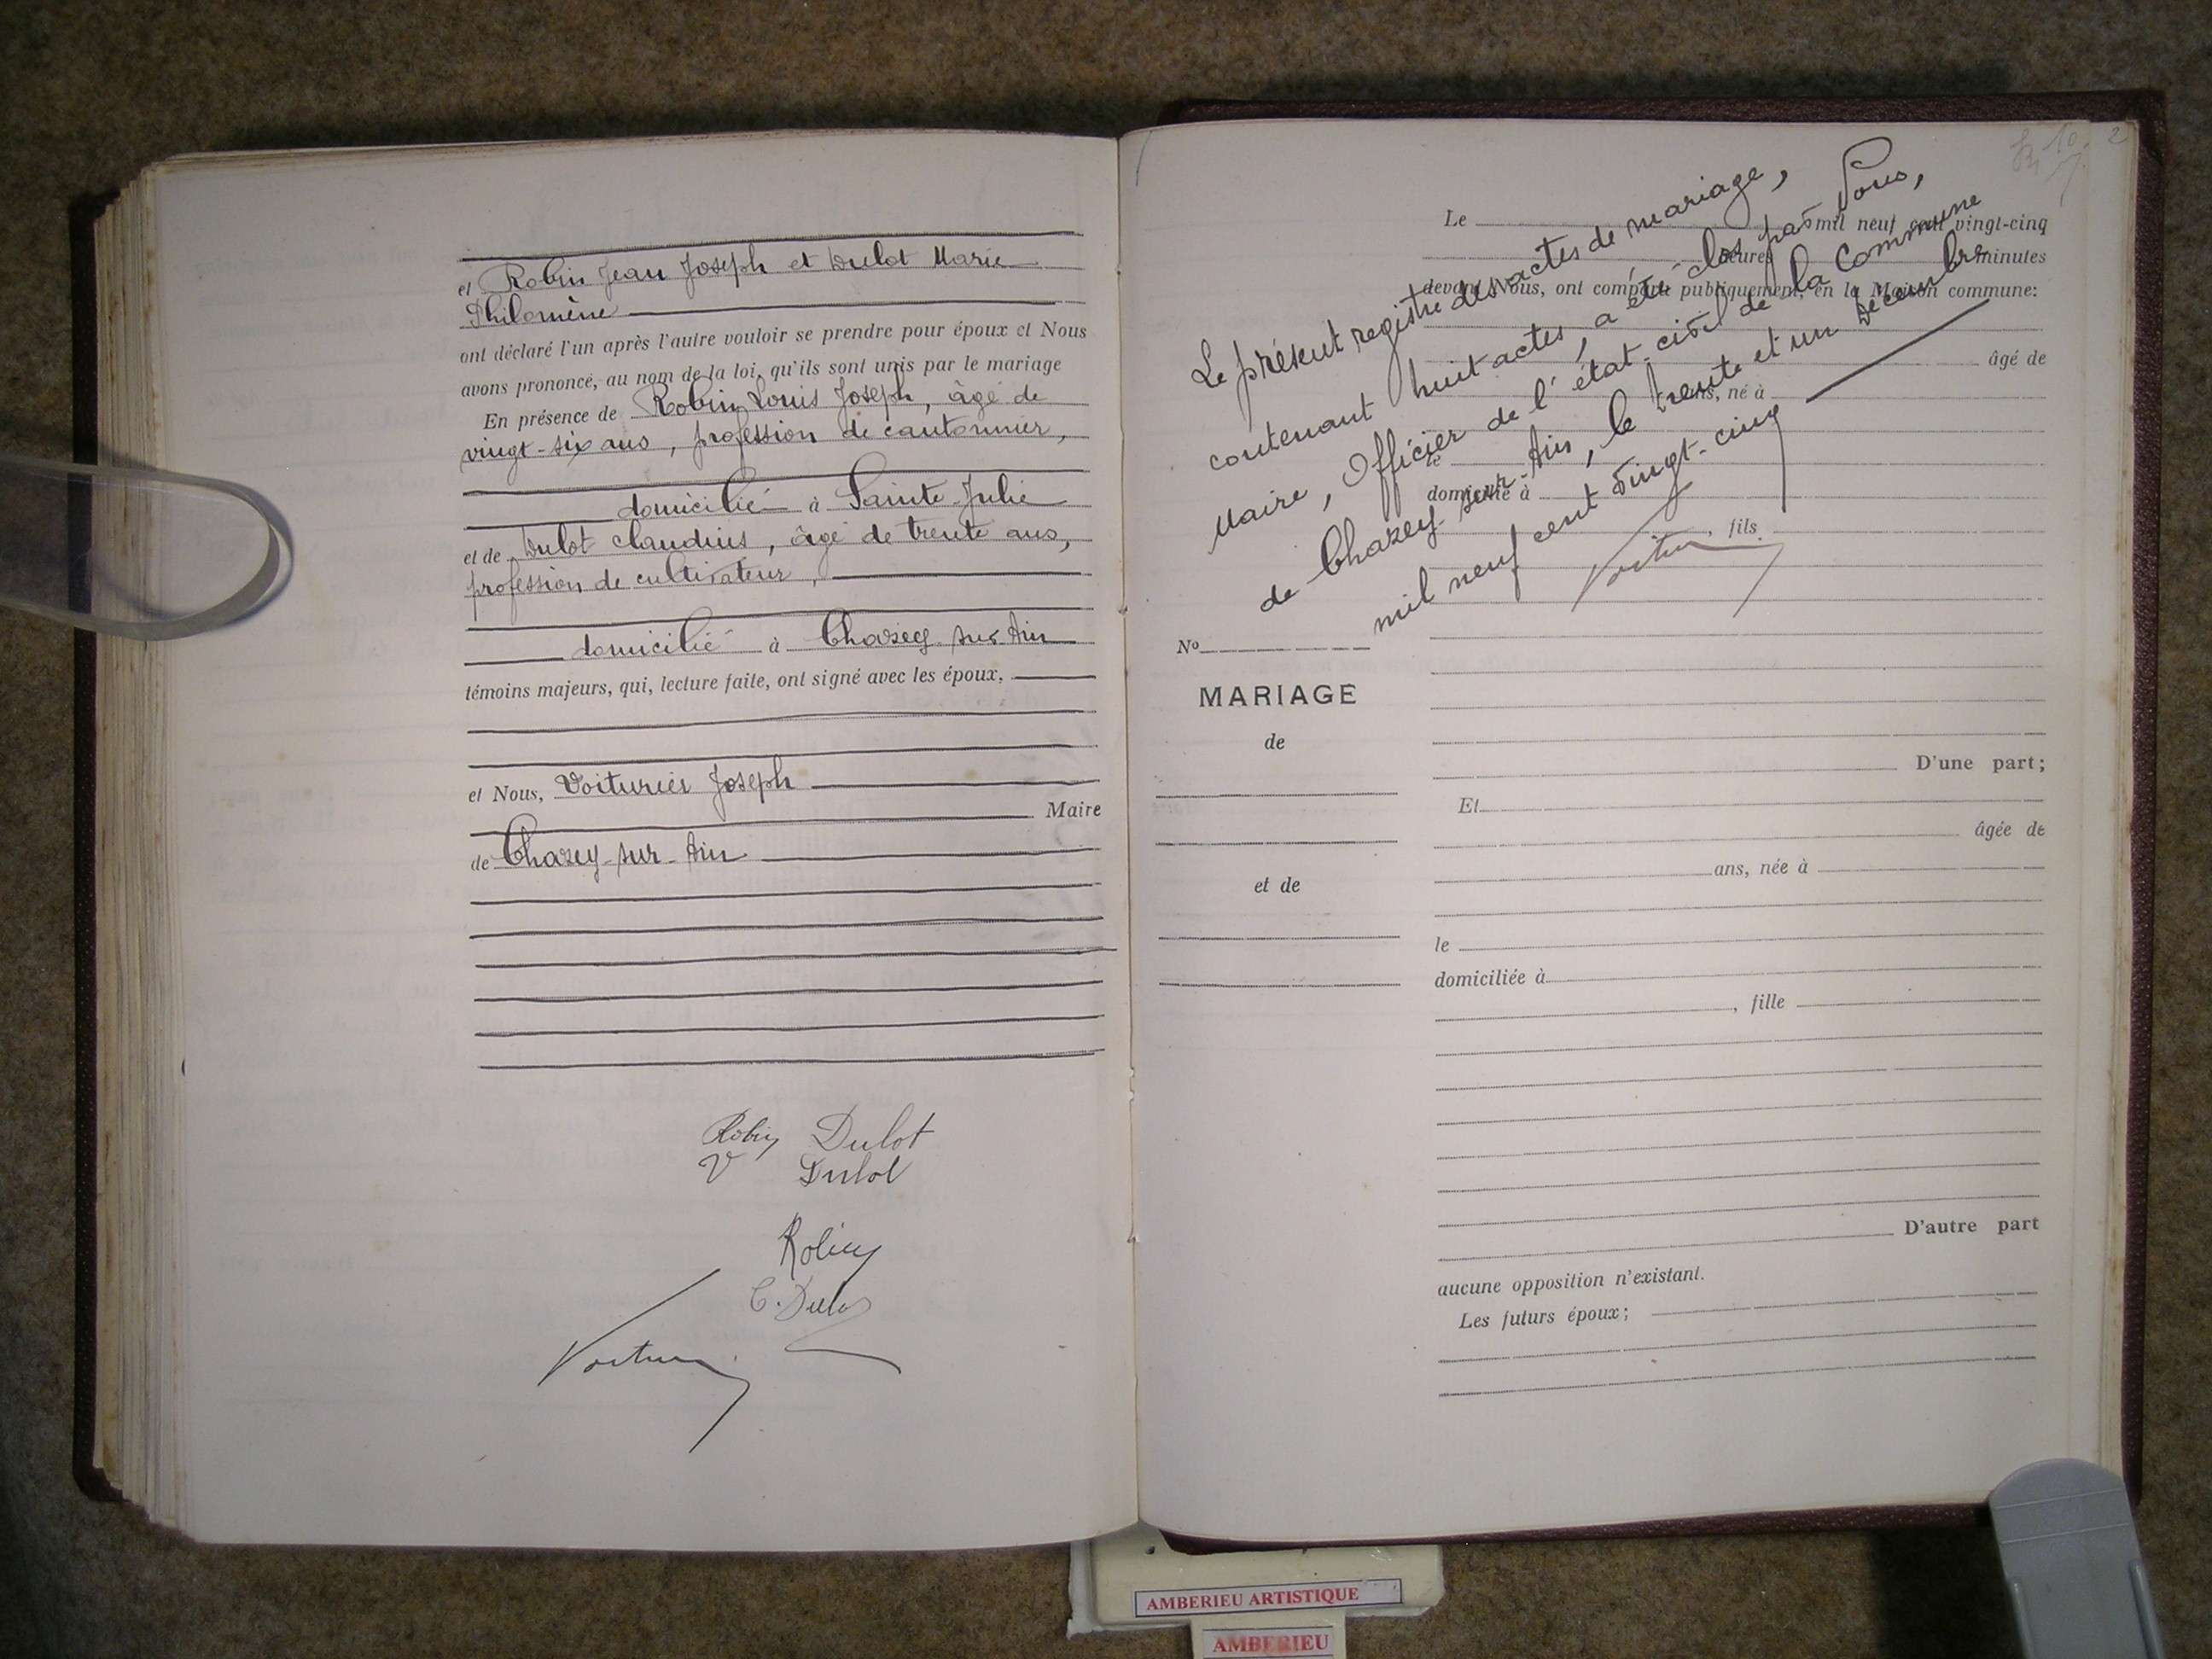 et Robin Jean Joseph et Dulot Marie
Philomène
ont déclaré l'un après l'autre vouloir se prendre pour époux et Nous
avons prononcé, au nom de la loi, qu'ils sont unis par le mariage
En présence de Robin Louis Joseph, âgé de
vingt-six ans, profession de cantonnier,
domicilié à Sainte-Julie
et de Dulot Claudius, âgé de trente ans,
profession de cultivateur,
domicilié à Chazey-sur-Ain
témoins majeurs, qui, lecture faite, ont signé avec les époux.
et Nous, Voiturier Joseph
Maire
de Chazey-sur-Ain
Robin Dulot
Dulot
Robin
C. Dulot
Le présent registre des actes de mariage,
contenant huit actes, a été clos par Nous,
Maire, Officier de l'état-civil de la Commune
de Chazey-sur-Ain, le trente et un Décembre
mil neuf cent vingt-cinq
Le mil neuf cent vingt-cinq
heures minutes
devant Nous, ont comparu publiquement, en la Maison commune:
âgé de
ans, né à
le
domicilié à
, fils
No
MARIAGE
de
et de
D'une part;
Et
âgée de
ans, née à
le
domiciliée à
, fille
D'autre part
aucune opposition n'existant.
Les futurs époux;
AMBERIEU ARTISTIQUE
AMBERIEU